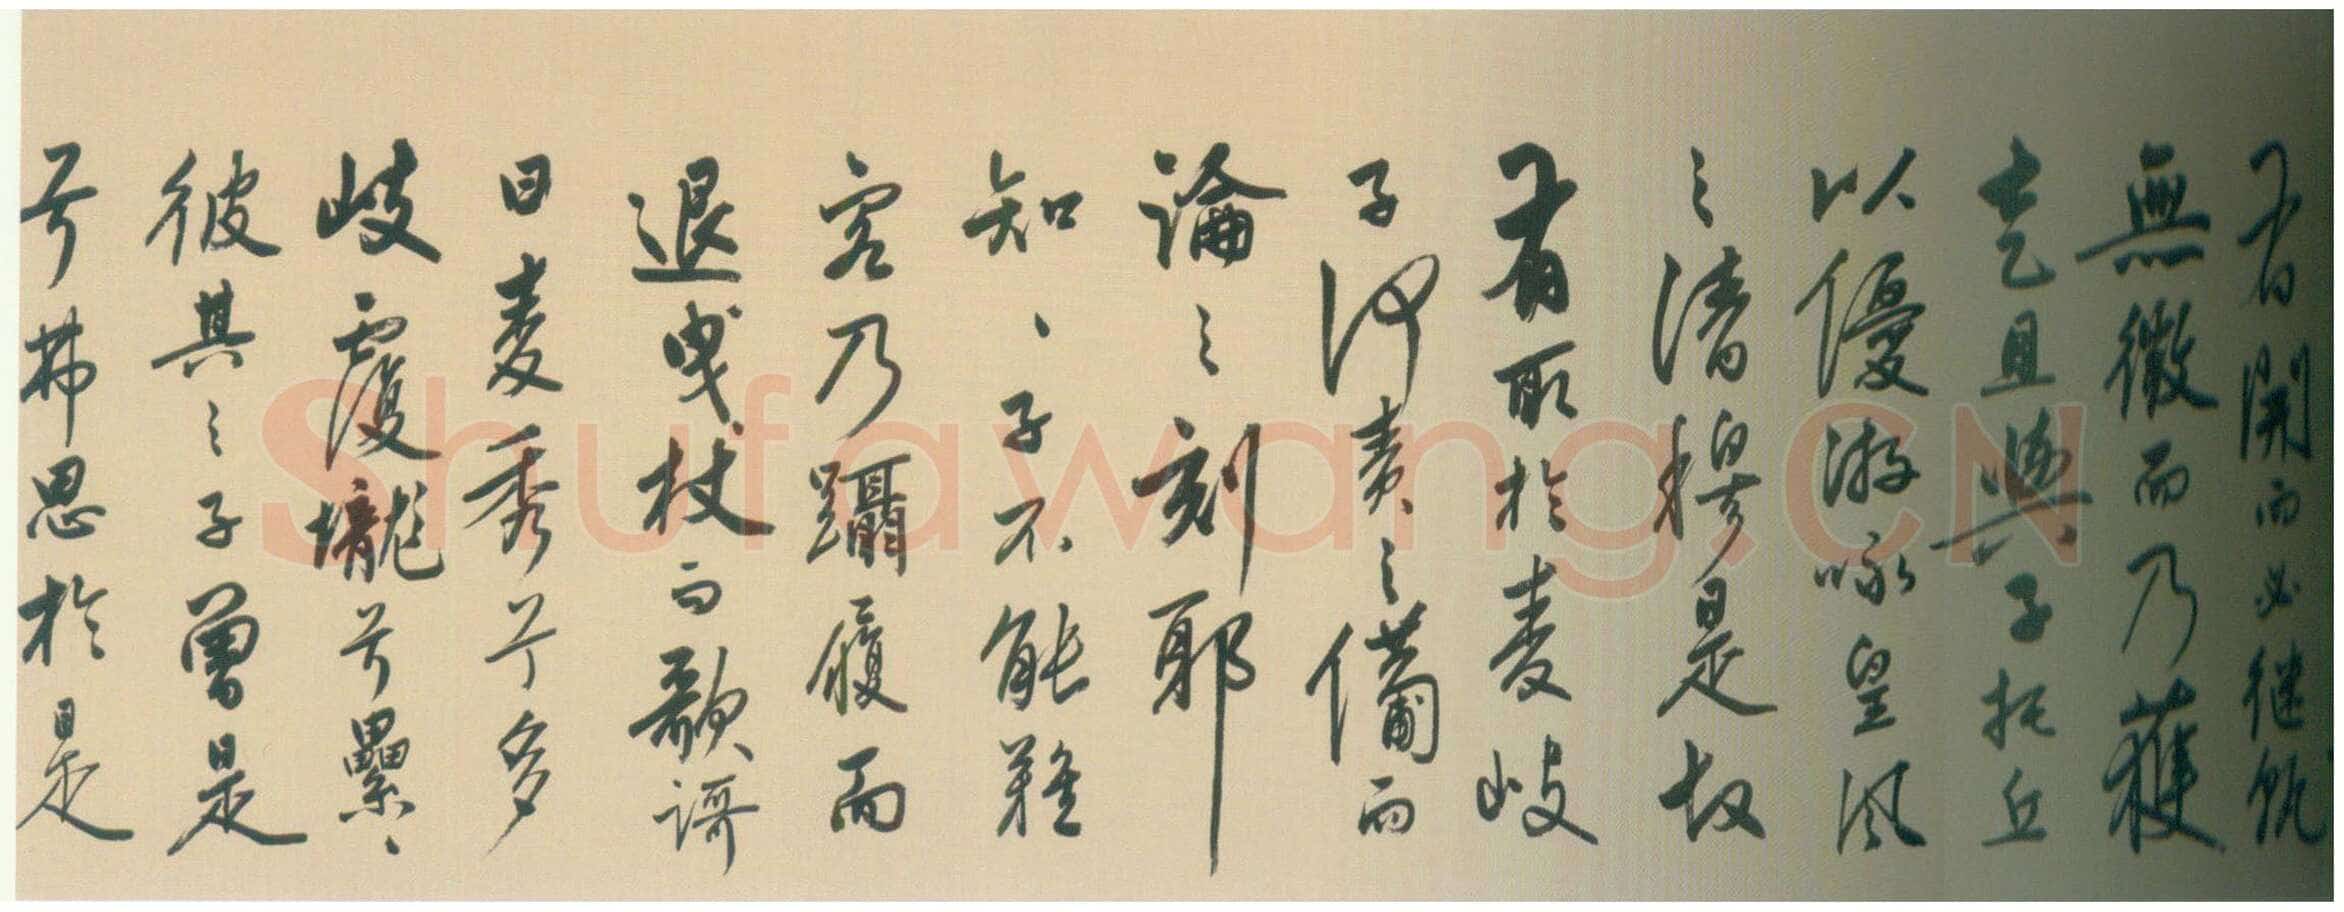 有開而必继
無徵而乃獲
且與子托丘
以優游咏皇風
之清穆是故
有取於麦岐
子何责之備而
論之刻耶
知、子不能難
客乃躡履而
退曳杖而歌謌
曰麦秀兮多
岐覆壠兮纍、
彼其之子曾是
兮弗思於是
Shufawang.CN